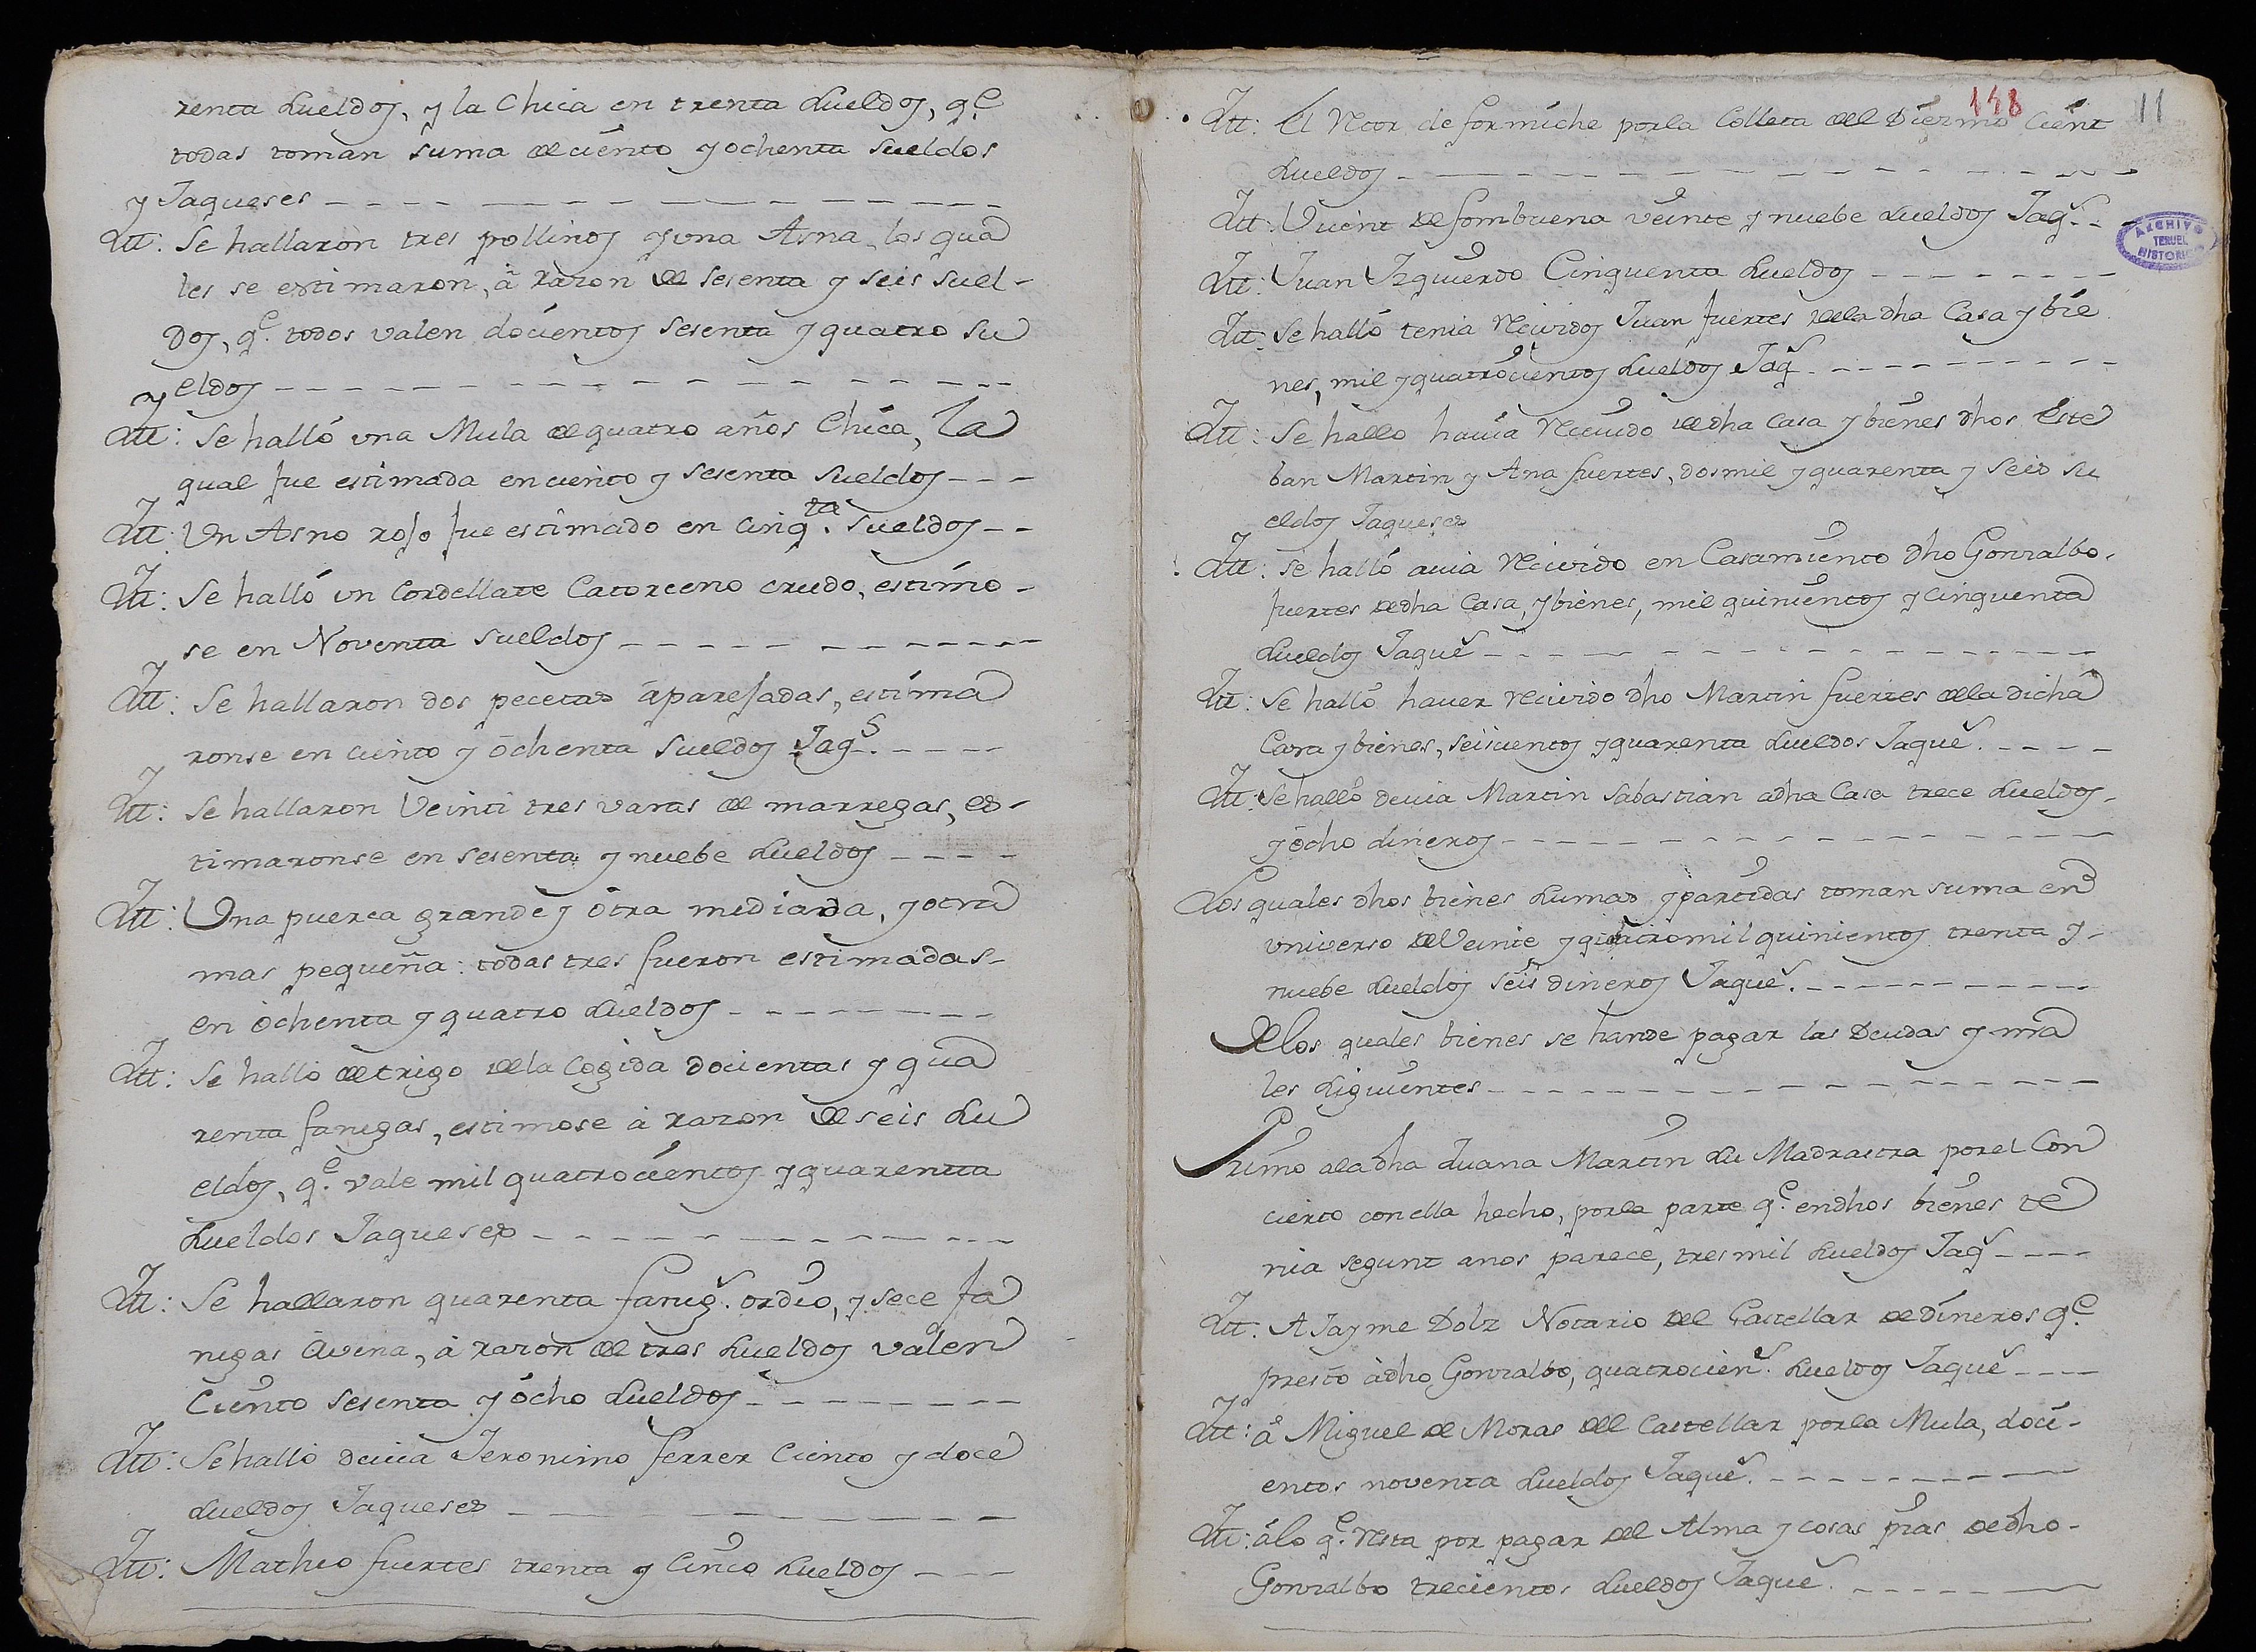 renta sueldos, y la Chica en trenta sueldos, q.e
todas toman suma de ciento y ochenta sueldos
y Jaqueses
Itt: Se hallaron tres pollinos y una Asna, los qua
les se estimaron, â razon de sesenta y seis suel-
dos, q.e todos valen docientos sesenta y quatro su
y eldos
Itt: Se halló una Mula de quatro años Chica, la
qual fue estimada en ciento y sesenta sueldos
Itt: Un Asno rojo fue estimado en cinq.ta sueldos
Itt: Se halló un Cordellate Catorceno crudo, estimo-
se en Noventa sueldos
Itt: Se hallaron dos pecetas aparejadas, estima
ronse en ciento y ochenta sueldos Jaq.s
Itt: Se hallaron Veinti tres varas de marregas, es-
timaronse en sesenta y nuebe sueldos
Itt: Una puerca grande y otra mediana, y otra
mas pequeña: todas tres fueron estimadas-
en ochenta y quatro sueldos
Itt: Se halló de trigo de la Cogida docientas y qua
renta fanegas, estimose à razon de seis su
eldos, q.e vale mil quatrocientos y quarentta
sueldos Jaqueses
Itt: Se hallaron quarenta faneg.s ordio, y sece fa
negas Avena, à razon de tres sueldos valen
Ciento sesenta y ocho sueldos
Itt: Se halló devia Jeronimo ferrer Ciento y doce
sueldos Jaqueses
Itt: Matheo fuertes trenta y Cinco sueldos
148 11
Itt: El Retor de formiche por la Colleta del Diezmo Cient
sueldos
ARCHIVO HISTORICO TERUEL
Itt: Vicent de fombuena veinte y nuebe sueldos Jaq.s
Itt: Juan Izquierdo Cinquenta sueldos
Itt: Se halló tenia Recividos Juan fuertes de la dha Casa y bie
nes, mil y quatrocientos sueldos Jaq.s
Itt: Se hallo havia Recivido de dha Casa y bienes dhos Este
ban Martin y Ana fuertes, dos mil y quarenta y seis su
eldos Jaqueses
Itt: se halló avia Recivido en Casamiento dho Gonzalbo
fuertes de dha Casa, y bienes, mil quinientos y cinquenta
sueldos Jaque.s
Itt: Se halló haver recivido dho Martin fuertes de la dicha
Casa y bienes, seiscientos y quarenta sueldos Jaque.s
Itt: Se halló devia Martin Sabastian a dha Casa trece sueldos
y ocho dineros
Los quales dhos bienes sumas y partidas toman suma en
universo de Veinte y quatro mil quinientos trenta y-
nuebe sueldos seis dineros Jaque.s
De los quales bienes se han de pagar las Deudas y ma
les siguientes
Primo a la dha Juana Martin su Madrastra por el Con
cierto con ella hecho, por la parte q.e en dhos bienes te
nia segunt a nos parece, tres mil sueldos Jaq.s
Itt: A Jayme Dolz Notario del Castellar de dineros q.e
prestó à dho Gonzalbo, quatrocien.s sueldos Jaque.s
Itt: â Miguel de Moras del Castellar por la Mula, doci-
entos noventa sueldos Jaque.s
Itt: á lo q.e Resta por pagar del Alma y cosas pias de dho-
Gonzalbo trecientos sueldos Jaque.s